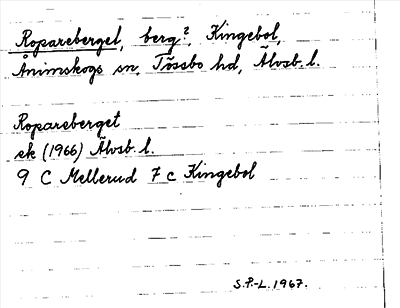 Ropareberget, berg?, Kingebol,
Ånimskogs sn, Tössbo hd, Älvsb. l.
Ropareberget
ek (1966) Älvsb l.
9 C Mellerud 7 c Kingebol
S.P.-L. 1967.